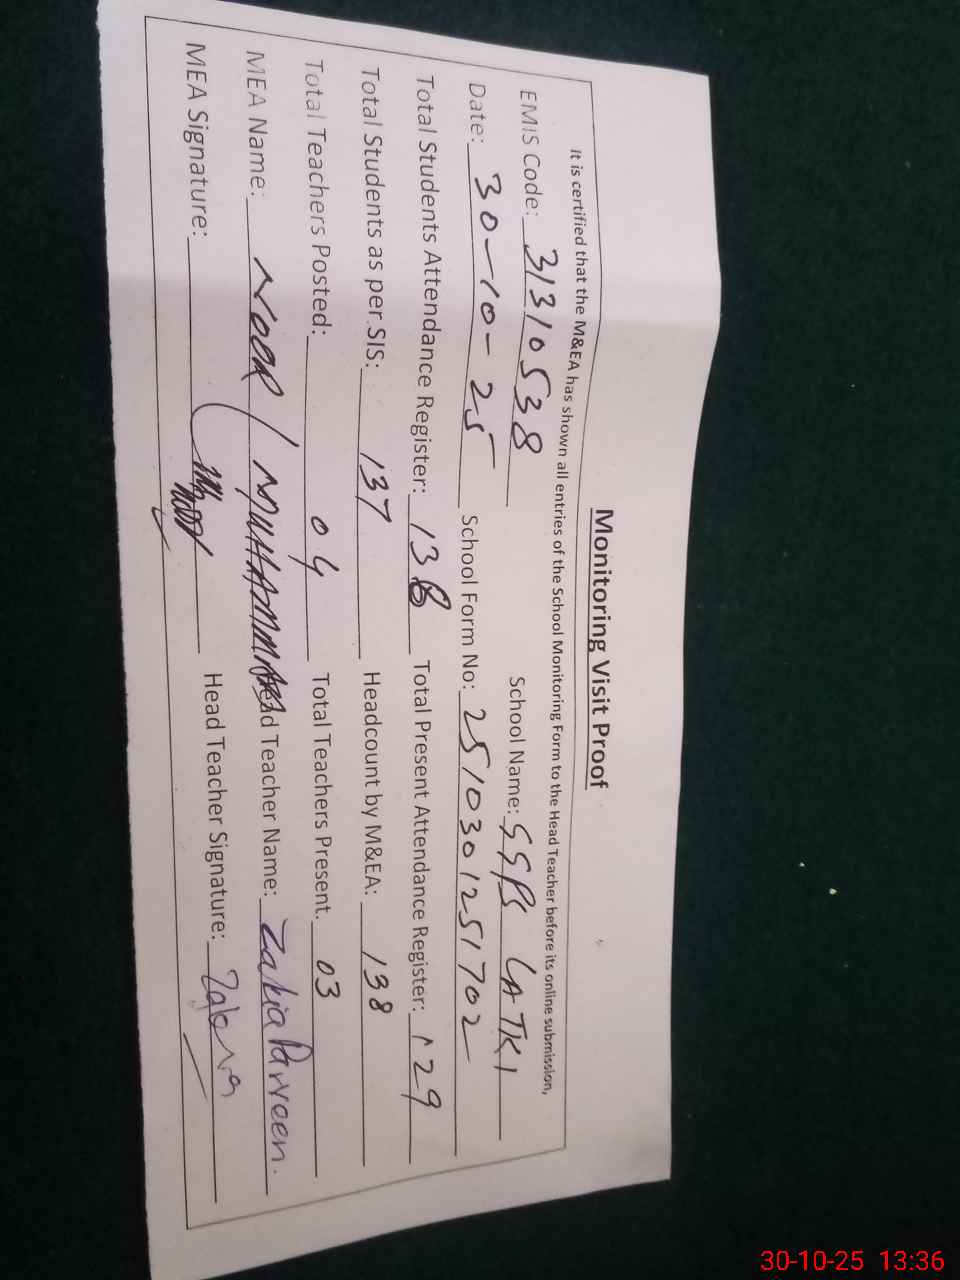 Monitoring Visit Proof
It is certified that the M&EA has shown all entries of the School Monitoring Form to the Head Teacher before its online submission,
EMIS Code: 31310538 School Name: GGPS LATKI
Date: 30-10-25 School Form No: 2510301251702
Total Students Attendance Register: 138 Total Present Attendance Register: 129
Total Students as per SIS: 137 Headcount by M&EA: 138
Total Teachers Posted: 04 Total Teachers Present. 03
MEA Name: NOOR MUHAMMAD Head Teacher Name: Zakia Parveen.
MEA Signature: Head Teacher Signature:
30-10-25 13:36